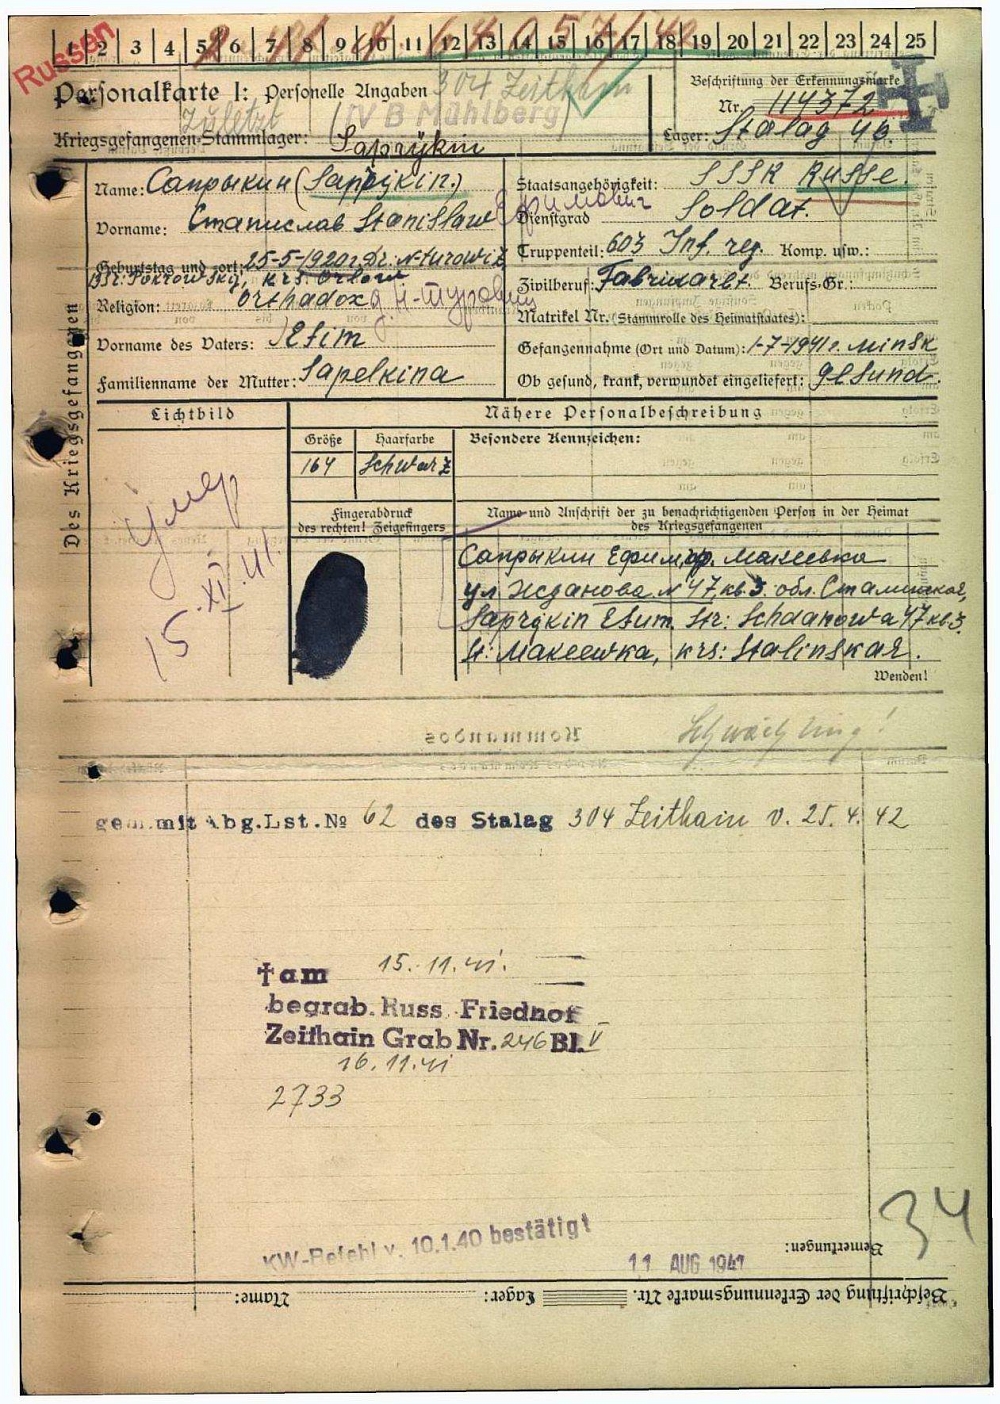 Russen
1 2 3 4 5 6 7 8 9 10 11 12 13 14 15 16 17 18 19 20 21 22 23 24 25
Personalkarte I: Personelle Angaben
304 Zeithain
Beschriftung der Erkennungsmarke
Nr. 114372
zuletzt
IV B Mühlberg
Kriegsgefangenen-Stammlager: Saprykin
Lager: Stalag 4b
Des Kriegsgefangenen
Name: Сапрыкин (Saprykin.)
Staatsangehörigkeit: SSSR Russe.
Vorname: Станислав Stanislaw Ефимович
Dienstgrad Soldat.
Geburtstag und -ort: 25-5-1920
Truppenteil: 603 Inf. reg. Komp. usw.:
krs. Orlow
Zivilberuf: Fabrikarbt. Berufs-Gr.:
Religion: Orthadox
Matrikel Nr. (Stammrolle des Heimatstaates):
Vorname des Vaters: Efim
Gefangennahme (Ort und Datum): 1-7-1941 г. Minsk
Familienname der Mutter: Sapelkina
Ob gesund, krank, verwundet eingeliefert: gesund.
Lichtbild
Nähere Personalbeschreibung
Größe Haarfarbe Besondere Kennzeichen:
164 Schwarz
умер
15.XI.41.
Fingerabdruck
des rechten! Zeigefingers
Name und Anschrift der zu benachrichtigenden Person in der Heimat
des Kriegsgefangenen
Сапрыкин Ефим, гор. Макеевка
ул Жданова N 47, кв 3. обл. Сталинская,
Saprykin Efim Str: Schdanowa 47 kw 3.
St: Makeewka, krs: Stalinskaя.
Wenden!
Kommandos
Schwächling!
gem. mit Abg.Lst.No 62 des Stalag 304 Zeithain v. 25.4.42
† am 15.11.41.
begrab. Russ. Friedhof
Zeithain Grab Nr. 246 Bl. V
16.11.41
2733
34
KW-Befehl v. 10.1.40 bestätigt
11 AUG 1941
Bemerkungen:
Beschriftung der Erkennungsmarke Nr. Lager: Name: